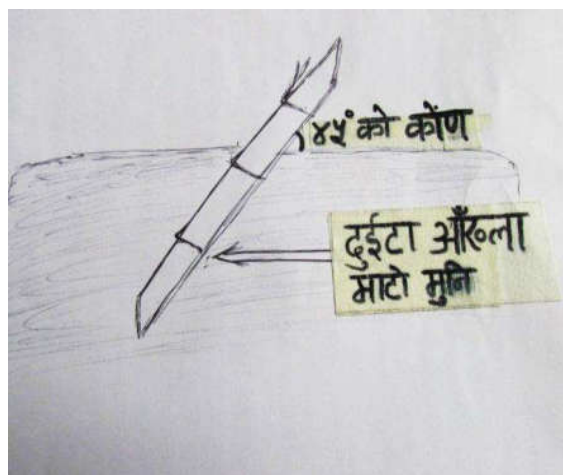 ४५° को कोंण
दुईटा आँख्ला
माटो मुनि